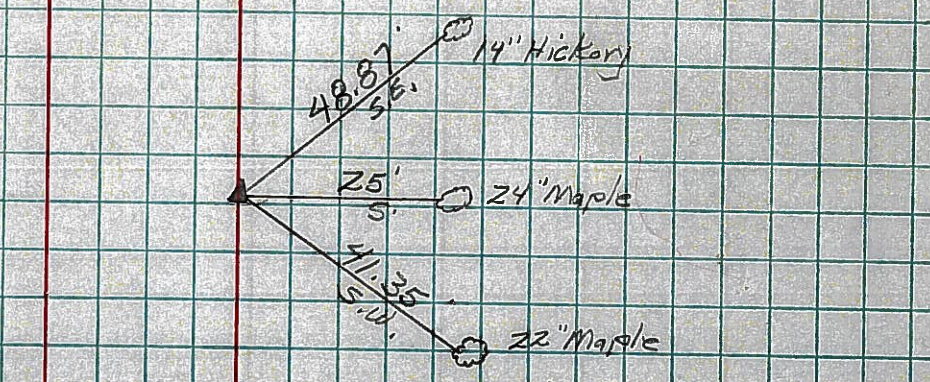 48.87'
S.E.
14" Hickory
25'
S.
24" Maple
41.35
S.W.
22" Maple